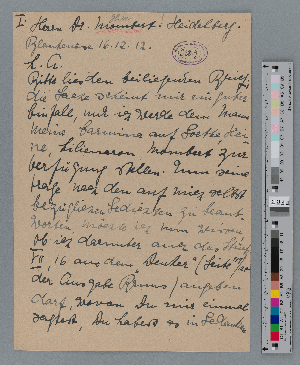 I. Herrn Dr. Mombert. Heidelberg.
Blankenese 16.12.12.
L. A.
Bitte lies den beiliegenden Brief,
die Sache scheint mir ein guter
Einfall, und ich werde dem Mann
meine Carmina auf Goethe, Hei
ne, Liliencron, Mombert zur
Verfügung stellen. Zum seine
Frage nach den auf mich selbst
bezüglichen Gedichten zu beant
worten möchte ich nun wissen,
ob ich darunter auch das Stück
VII, 16 aus dem "Denker" (Seite
der Ausgabe angeben
darf, wovon Du mir einmal
sagtest, Du habest es in Gedanken